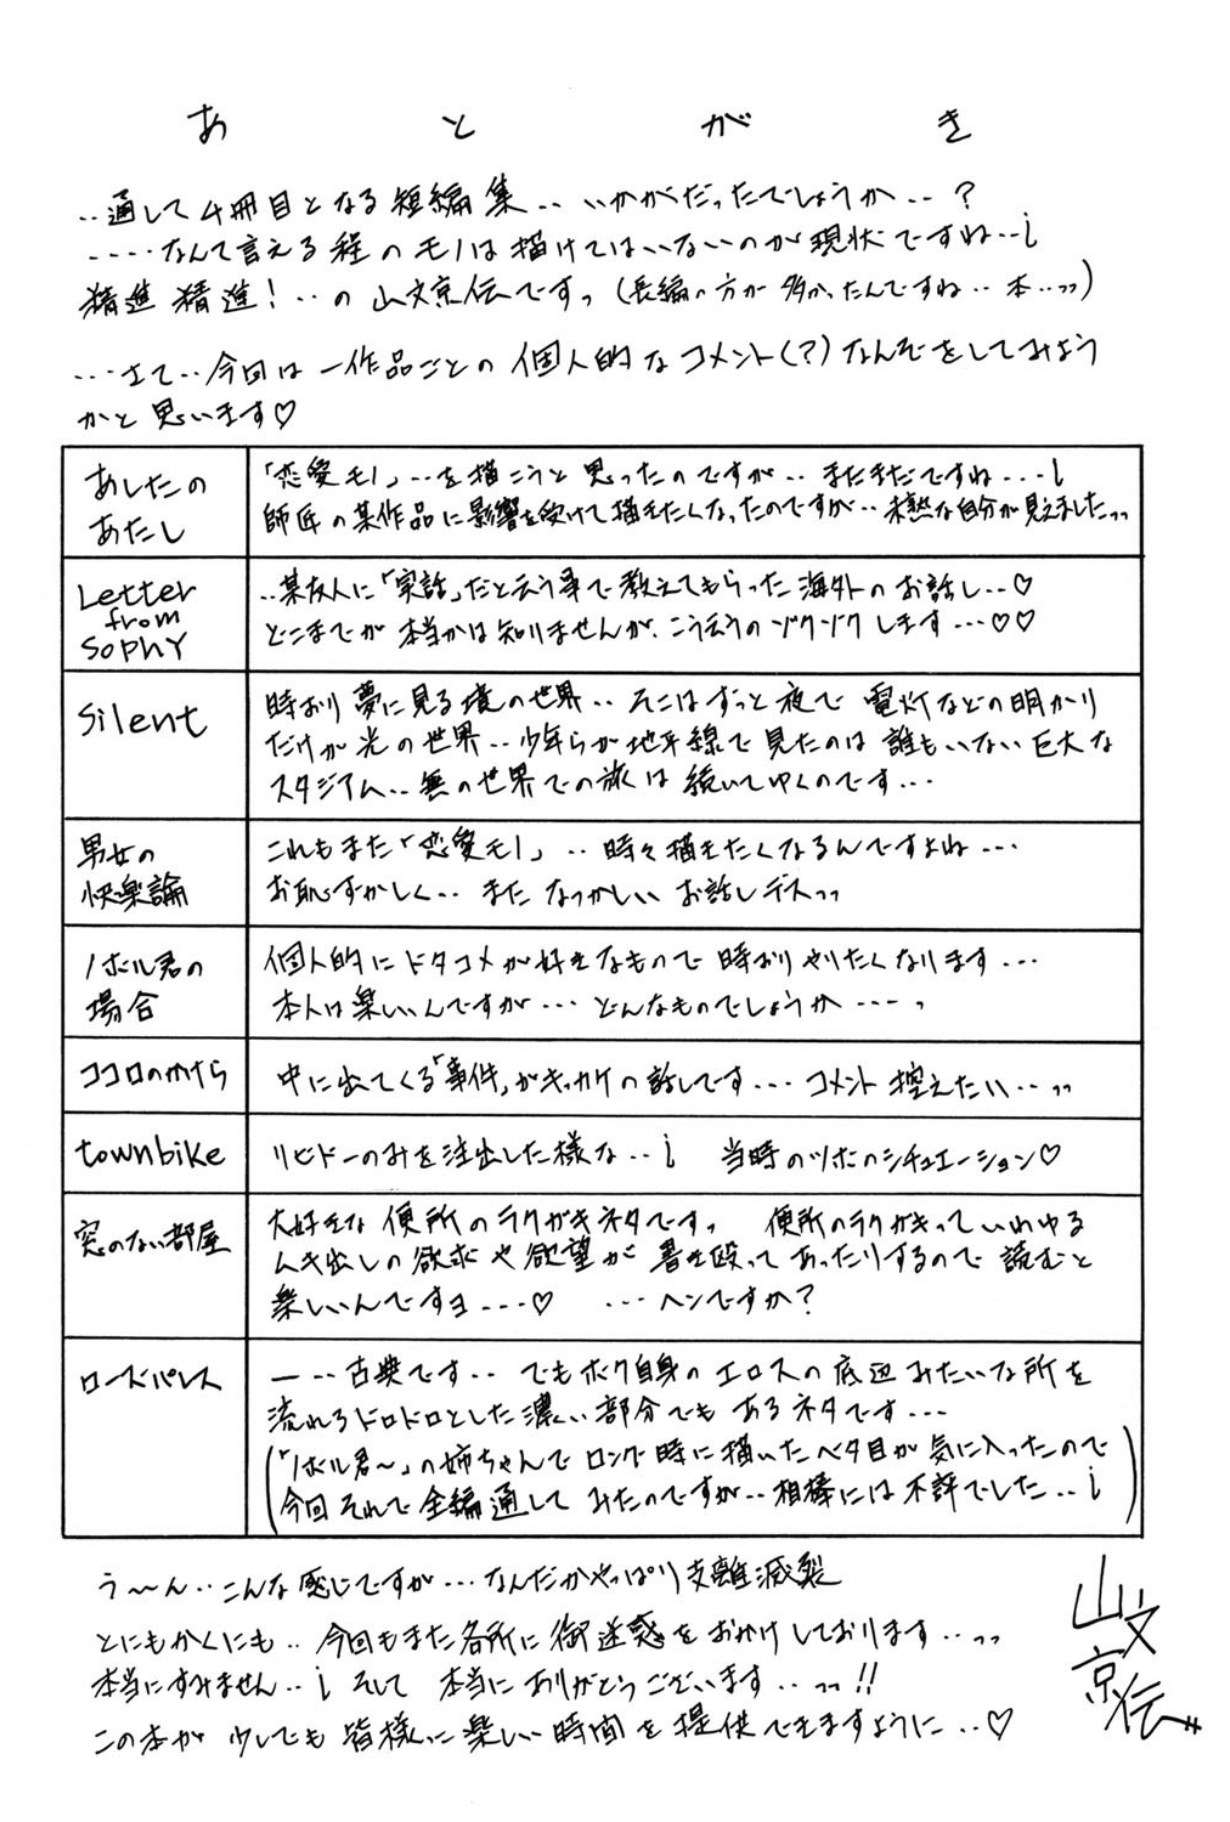 あとがき
‥通して4冊目となる短編集‥いかがだったでしょうか‥?
‥‥なんて言える程のモノは描けてはいないのが現状ですね‥¡
精進精進!‥の山文京伝ですっ(長編の方が多かったんですね‥本‥ッッ)
‥‥さて‥今回は一作品ごとの個人的なコメント(?)なんぞをしてみよう
かと思います♡
あしたの
あたし
「恋愛モノ」‥を描こうと思ったのですが‥まだまだですね‥‥¡
師匠の某作品に影響を受けて描きたくなったのですが‥未熟な自分が見えましたッッ
Letter
from
SophY
‥某友人に「実話」だと云う事で教えてもらった海外のお話し‥♡
どこまでが本当かは知りませんが、こう云うのゾクゾクします‥‥♡♡
Silent
時おり夢に見る境の世界‥そこはずっと夜で電灯などの明かり
だけが光の世界‥少年らが地平線で見たのは誰もいない巨大な
スタジアム‥無の世界での旅は続いてゆくのです‥‥
男女の
快楽論
これもまた「恋愛モノ」‥時々描きたくなるんですよね‥‥
お恥ずかしく‥またなつかしいお話しデスッッ
ノボル君の
場合
個人的にドタコメが好きなもので時おりやりたくなります‥‥
本人は楽しいんですが‥‥どんなものでしょうか‥‥っ
ココロのかけら
中に出てくる「事件」がキッカケの話しです‥‥コメント控えたい‥ッッ
townbike
リビドーのみを注出した様な‥¡ 当時のツボのシチュエーション♡
窓のない部屋
大好きな便所のラクガキネタですっ 便所のラクガキっていわゆる
ムキ出しの欲求や欲望が書き殴ってあったりするので読むと
楽しいんですヨ‥‥♡ ‥‥ヘンですか?
ローズパレス
―‥古典です‥でもボク自身のエロスの底辺みたいな所を
流れるドロドロとした濃い部分でもあるネタです‥‥
(「ノボル君〜」の姉ちゃんでロング時に描いたベタ目が気に入ったので
今回それで全編通してみたのですが‥相棒には不評でした‥¡)
う〜ん‥こんな感じですが‥‥なんだかやっぱり支離滅裂
とにもかくにも‥今回もまた各所に御迷惑をおかけしております‥ッッ
本当にすみません‥¡そして本当にありがとうございます‥ッッ!!
この本が少しでも皆様に楽しい時間を提供できますように‥♡
山文
京伝